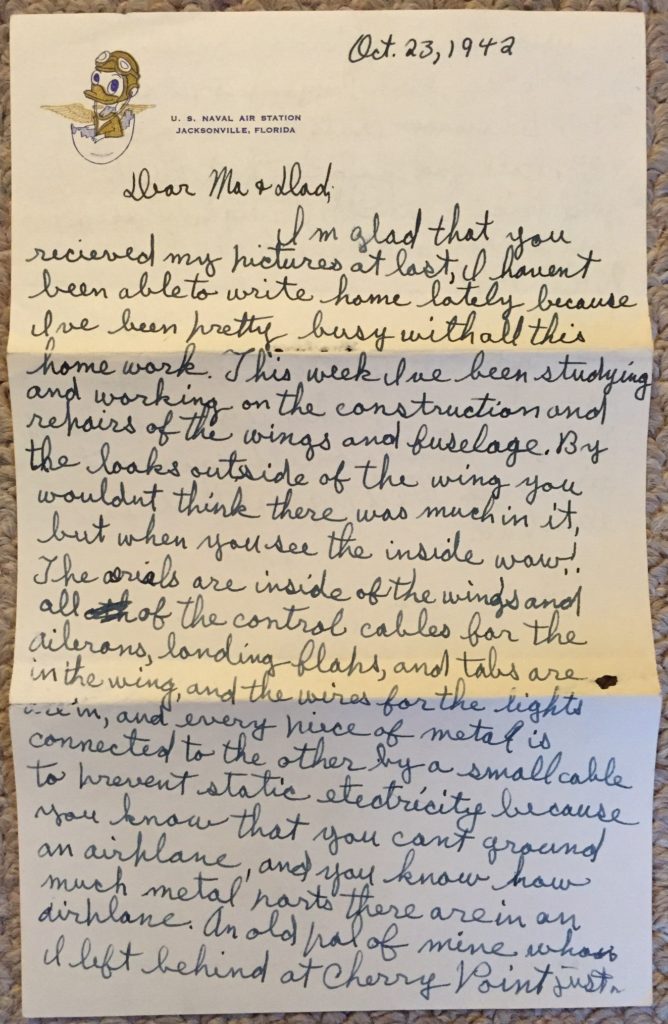 Oct. 23, 1942
U. S. NAVAL AIR STATION
JACKSONVILLE, FLORIDA
Dear Ma & Dad,
I'm glad that you
recieved my pictures at last, I havent
been able to write home lately because
I've been pretty busy with all this
home work. This week I've been studying
and working on the construction and
repairs of the wings and fuselage. By
the looks outside of the wing you
wouldnt think there was much in it,
but when you see the inside wow!
The arials are inside of the wings and
all of the control cables for the
ailerons, landing flaps, and tabs are
in the wing, and the wires for the lights
are in, and every piece of metal is
connected to the other by a small cable
to prevent static electricity because
you know that you cant ground
an airplane, and you know how
much metal parts there are in an
airplane. An old pal of mine whom
I left behind at Cherry Point just